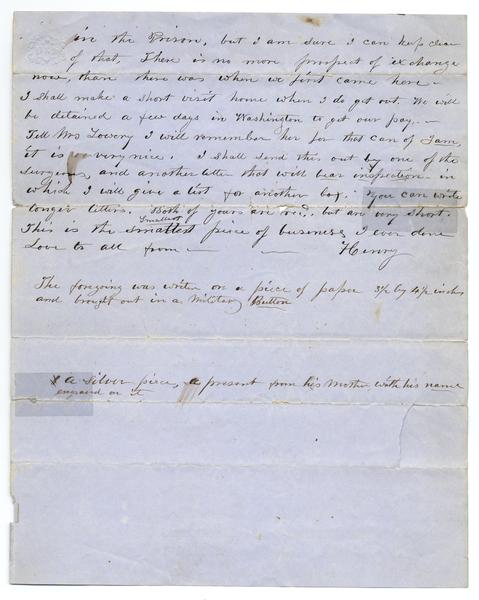 in the Prison, but I am sure I can keep clear
of that, There is no more prospect of exchange
now, than there was when we first came here —
I shall make a short visit home when I do get out. We will
be detained a few days in Washington to get our pay. —
Tell Mrs Lowery I will remember her for that can of Jam,
it is very nice. I shall send this out by one of the
surgeons, and another letter that will bear inspection in
which I will give a list for another box. You can write
longer letters. Both of yours are recd, but are very short.
Smallest
This is the smallest piece of business I ever done
Love to all from — — Henry
The foregoing was written on a piece of paper 3½ by 4½ inches
and brought out in a Military Button
x a silver piece, a present from his Mother with his name
engraved on it